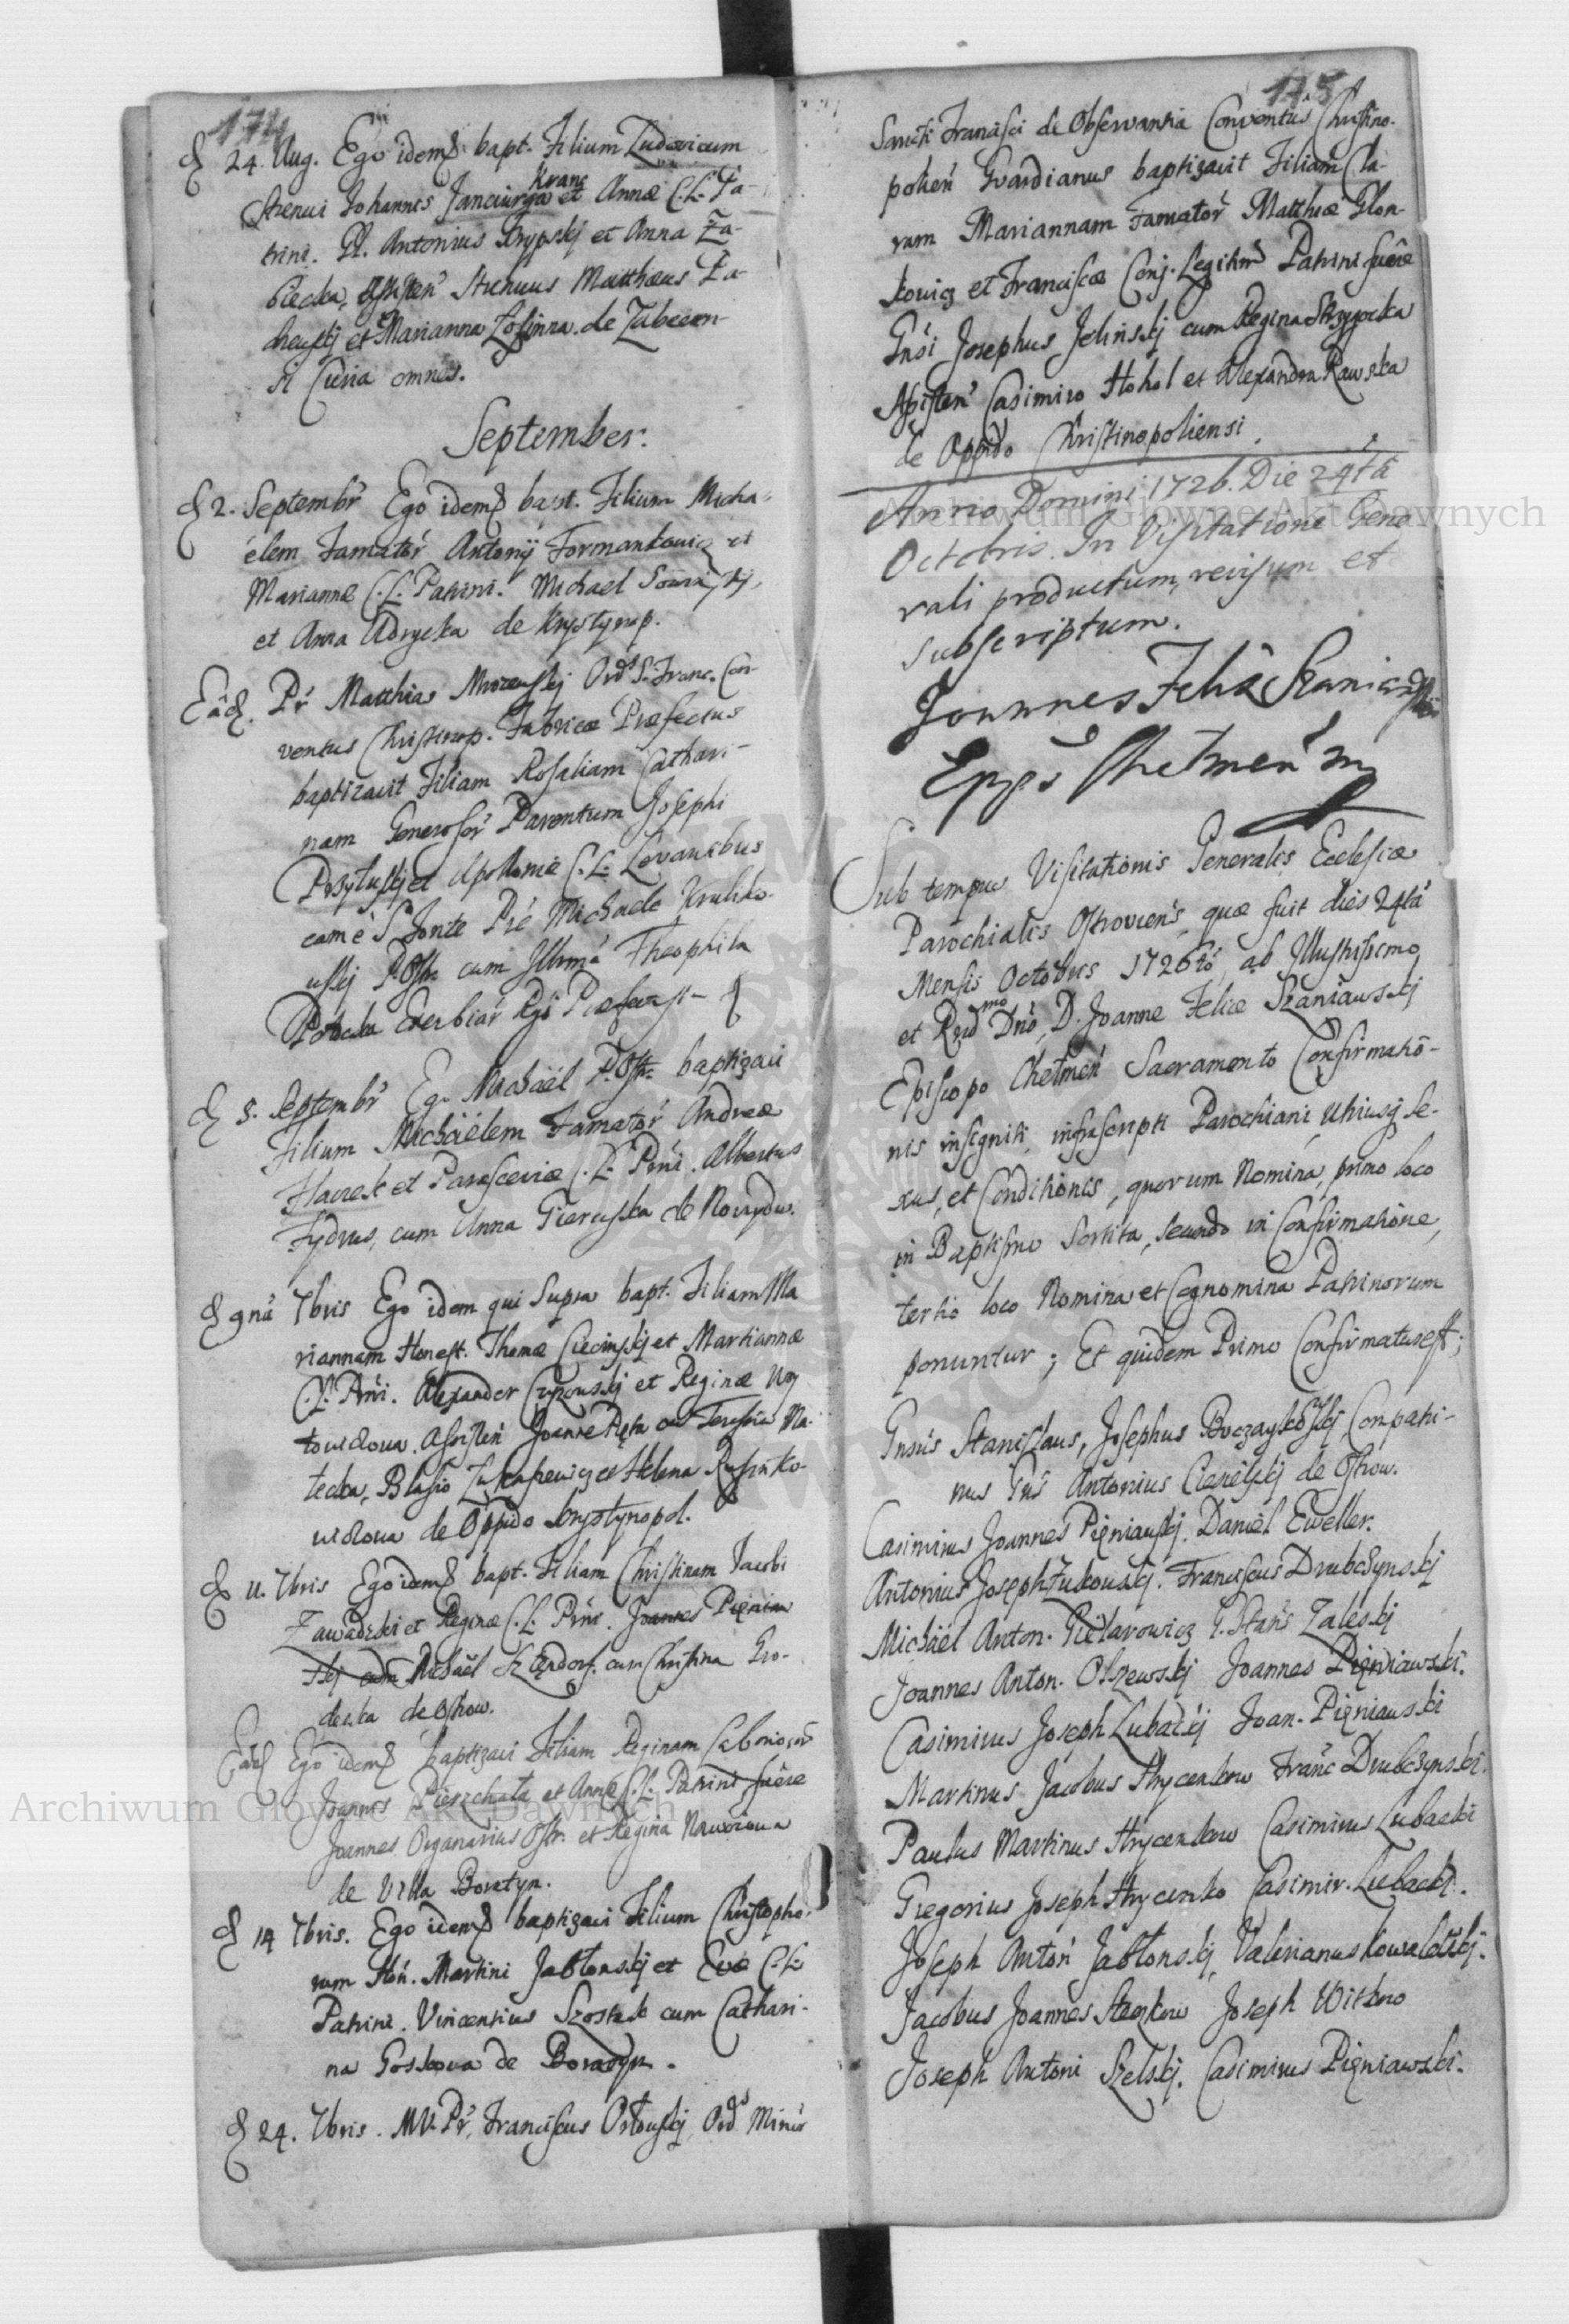 174
D 24. Aug. Ego idemq bapt. Filium Ludovicum
Strenui Johannis Janciurga et Annæ C.L. Pa-
Krane
trini. Gl. Antonius Krypskj et Anna Za-
biecka, Assisten Strenuus Matthæus Za-
et Marianna de
Curia omnes.
September.
D 2. Septembr Ego idemq bapt. Filium Micha-
élem Famator Antonij Formankowicz et
Mariannæ C.L. Patrini. Michael
et Anna Adrycka de Krystynop.
Eâd. Pr Matthias Mrozewskj Ords S. Franc. Con-
ventus Christinop. Fabricæ Præfectus
baptizavit Filiam Rosaliam Cathari-
nam Generosor Parentum Josephi
Przyłuskj et Apolloniæ C.L. Levantibus
eam è S. Fonte Pre Michaele Kruliko-
wskij P. Ostr. cum Illrmâ Theophila
Potocka
D 5. Septembr Ego Michaël P. Ostr. baptizavi
Filium Michäélem Famator Andreæ
Hawrek et Parasceviæ C.L. Prni. Albertus
Fydrus, cum Anna Gieruska de Nowydw.
D 9nâ 7bris Ego idem qui Supra bapt. Filiam Ma
riannam Honest. Thomæ Ciecinskj et Martiannæ
C.L. Prni. Alexander Czyzouskj et Reginæ
towidowa. Assisten Joanne Pięta cum Teresia Ma-
tecka, Blasio Łukasiewicz et Helena Rusinko-
widowa de Oppido Krystynopol.
D 11. 7bris Ego idemq bapt. Filiam Christinam Jacobi
Zawadzki et Reginæ C.L. Prni. Joannes Pięniaw
skj cum Michaël Szlędorf. cum Christina Gro-
decka de Ostrow.
Eâd Ego idemq baptizavi Filiam Reginam Laborioror
Joannis Pierzchała et Annæ C.L. Patrini fuêre
Joannes Organarius Ostr. et Regina
de Villa Boratyn.
D 14 7bris. Ego idemq baptizavi Filium Christopho-
rum Hon. Martini Jabłonskj et Evæ C.L.
Patrini. Vincentius Szostak cum Cathari-
na Goskowa de Boratyn.
D 24. 7bris. MV. Pr, Franciscus Orłowskj Ords Minor
175
Sancti Francisci de Observantia Conventûs Christino-
polien Guardianus baptizavit Filiam Cla-
ram Mariannam Famator Matthiæ Glon-
kowicz et Franciscæ Conj. Legitim Patrini fuêre
Gnsi Josephus Jelinskj cum Regina Skrzypecka
Assisten Casimiro Hohol et Alexandra Rawska
de Oppido Christinopoliensi.
Anno Domini 1726. Die 24tâ
Octobris. In Visitatione Gene
rali productum, revisum et
subscriptum.
Joannes Felix Szaniawski
Epps Chelmen mp
Sub tempus Visitationis Generalis Ecclesiæ
Parochialis Ostroviens, quæ fuit dies 24tâ
Mensis Octobris 1726tô, ab Illustrissimo
et Rndmo Dno, D. Joanne Felice Szaniawskj
Episcopo Chełmen Sacramento Confirmatiô-
nis insigniti, infrascripti Parochiani utriusq se-
xus, et Conditionis, quorum Nomina, primo loco
in Baptismo Sortita, secundo in Confirmatione,
tertio loco Nomina et Cognomina Patrinorum
ponuntur; Et quidem Primo Confirmatus est;
Gnsus Stanislaus, Josephus Buczaykowskj Compatri-
nus Gns Antonius Ciesielskj de Ostrow.
Casimirus Joannes Pięniawskj. Daniel Eweller.
Antonius Joseph Żukowskj. Franciscus Drubczynskj
Michäél Anton. Gielarowicz G. Stans Zaleskj
Joannes Anton. Olszewskj Joannes Pięniawski.
Casimirus Joseph Lubackj Joan. Pięniawski
Martinus Jacobus Hrycenkow Franc Drubczynski.
Paulus Martinus Hrycenkow Casimirus Lubacki
Gregorius Joseph Hrycenko Casimir. Lubacki.
Joseph Anton Jabłonskj, Valerianus Kowalewskj.
Jacobus Joannes Steckow Joseph Witkno
Joseph Antoni Szelskj. Casimirus Pięniawski.
Archiwum Główne Akt Dawnych
Archiwum Główne Akt Dawnych